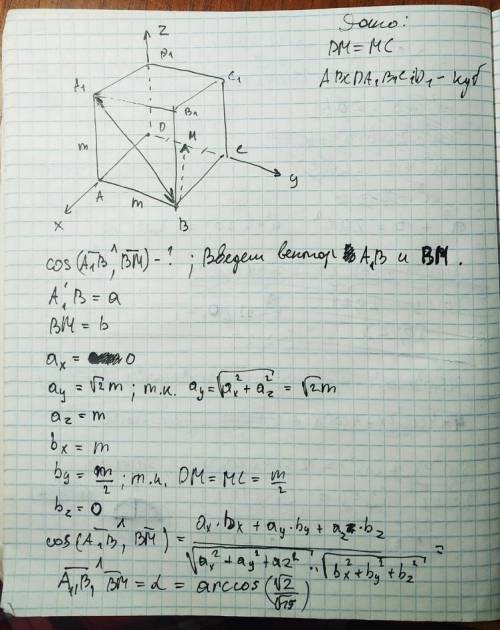 Дано:
DM = MC
ABCDA₁B₁C₁D₁ - куб
z
D₁
A₁
C₁
B₁
m
D
M
C
A
m
B
x
y
cos(A₁B^, BM) - ? ; Введем вектор A₁B и BM.
A₁B = a
BM = b
aₓ = 0
a_y = √2 m ; т.к. a_y = √(aₓ² + a_z²) = √2 m
a_z = m
bₓ = m
b_y = m/2 ; т.к. DM = MC = m/2
b_z = 0
cos(A₁B^, BM) = (aₓ · bₓ + a_y · b_y + a_z · b_z) / (√(aₓ² + a_y² + a_z²) · √(bₓ² + b_y² + b_z²)) =
A₁B,^ BM = α = arccos(√2/√15)